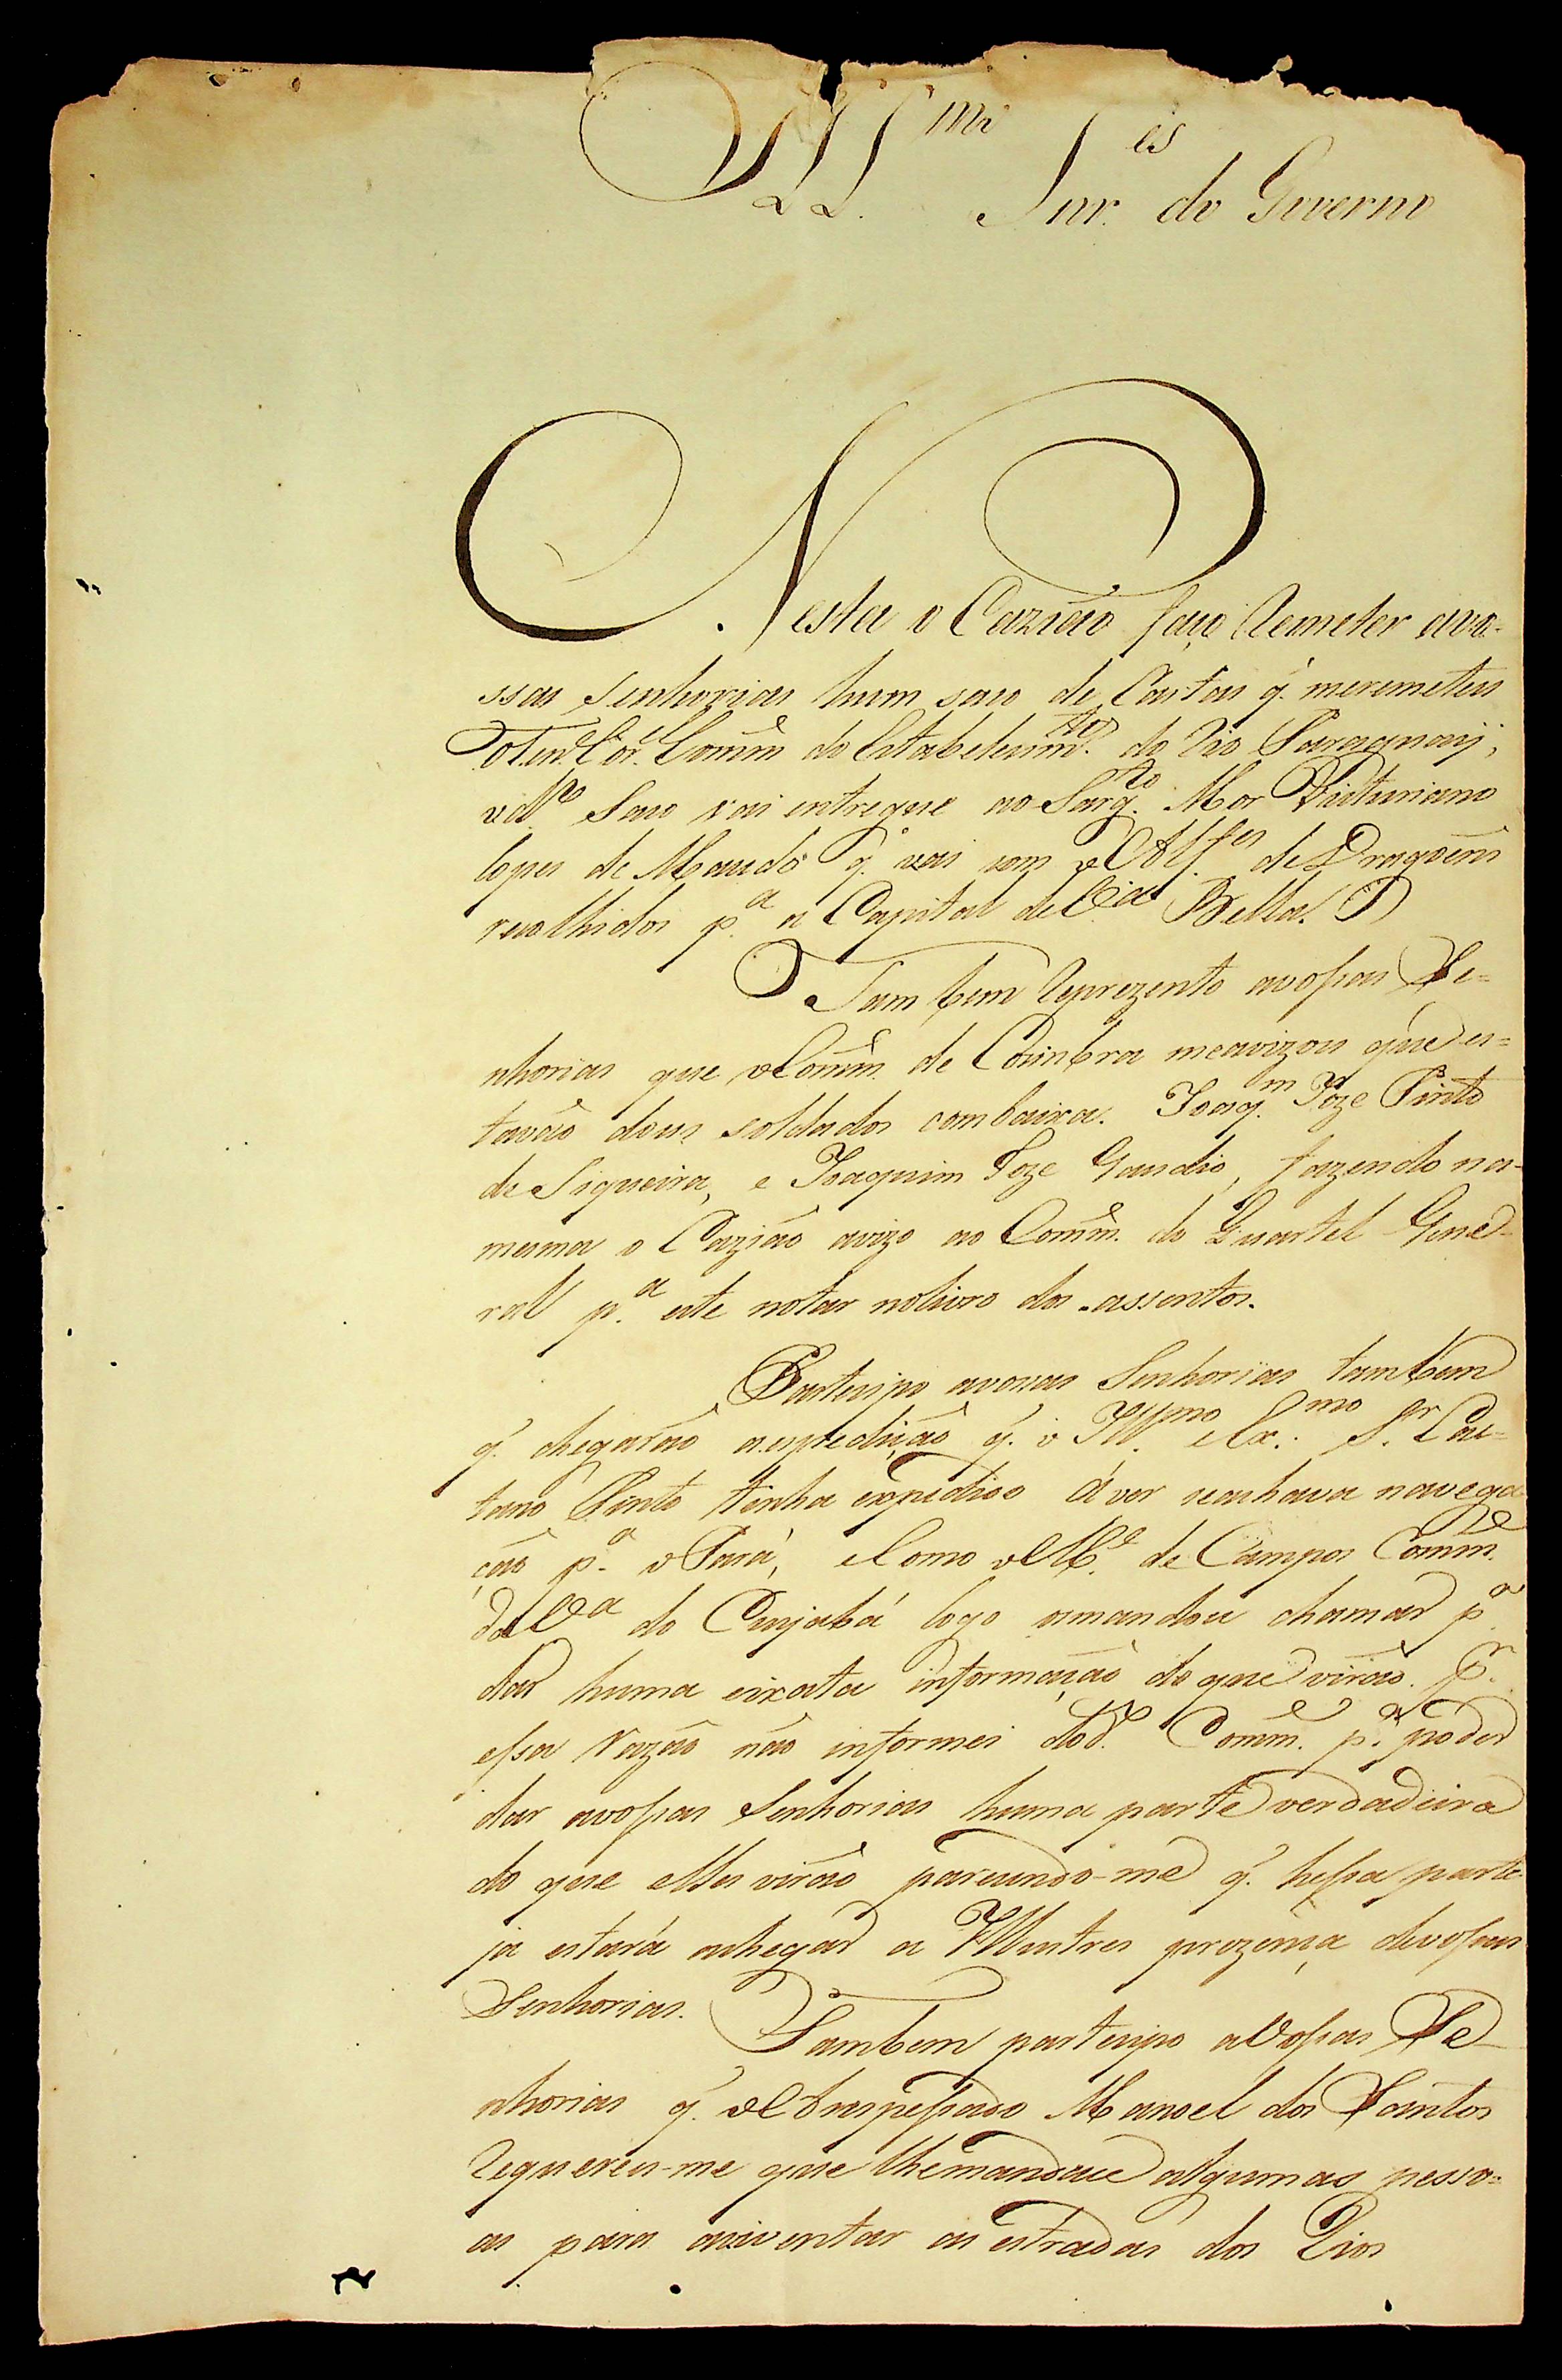 Ill.mos Snr.es do Governo
Nesta o Cazião faço Remeter avo-
ssas Senhorias hum saco de Cartas q. meremeteu
oTen.e Cor.el Comm.e do Estabelecim.to do Rio Paraguaij,
odº Saco vai entregue ao Sarg.to Mor Victuriano
lopes de Macedo q. vai com o Alf.es de Dragoens
recolhidos p.a a Capital deV.a Bella.
Tambem Reprezento avossas Se=
nhorias que oComm.e de Coimbra meavizou que es=
tavão dous soldados combaixa. Joaq.m Joze Pinto
de Siqueira, e Joaquim Joze Gaudio, fazendo na-
mesma o Cazião avizo ao Comm.e do Quartel Gene-
ral p.a este notar nolivro dos assentos.
Partecipo avossas Senhorias tambem
q. chegarão aexpedição q. o Ill.mo eEx.mo S.r Cae=
tano Pinto tinha expedido a ver seachava navega
ção p.a oPará, eComo oAl.e de Campos Comm.e
daV.a do Cuyabá logo osmandou chamar p.a
dar huma eixata informação do que virão. P.r
essa Razão não informei dod.o Comm.e p.a poder
dar avossas Senhorias huma parte verdadeira
do que elles virão parecendo-me q. hessa parte
ja estará achegar a Illustres prezença devossas
Senhorias.
Tambem partecipo aVossas Se-
nhorias q. o Anspessado Manoel dos Santos
Requereu-me que lhemandace algumas pesso=
as para aviventar as estradas dos Rios